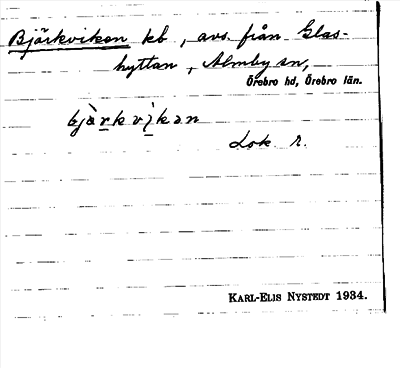 Björkviken lb, avs. från Glas-
hyttan, Almby sn,
Örebro hd, Örebro län.
bjä̀rkvìkən
Lok r.
KARL-ELIS NYSTEDT 1934.